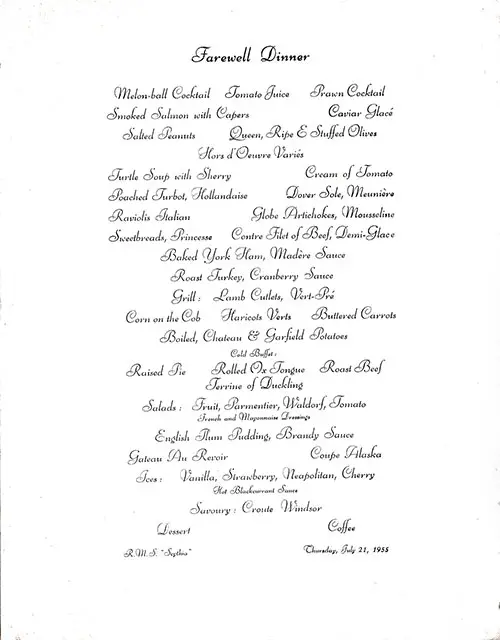 Farewell Dinner
Melon-ball Cocktail Tomato Juice Prawn Cocktail
Smoked Salmon with Capers Caviar Glacé
Salted Peanuts Queen, Ripe & Stuffed Olives
Hors d'Oeuvre Variés
Turtle Soup with Sherry Cream of Tomato
Poached Turbot, Hollandaise Dover Sole, Meunière
Raviolis Italian Globe Artichokes, Mousseline
Sweetbreads, Princesse Contre Filet of Beef, Demi-Glace
Baked York Ham, Madère Sauce
Roast Turkey, Cranberry Sauce
Grill: Lamb Cutlets, Vert-Pré
Corn on the Cob Haricots Verts Buttered Carrots
Boiled, Chateau & Garfield Potatoes
Cold Buffet:
Raised Pie Rolled Ox Tongue Roast Beef
Terrine of Duckling
Salads: Fruit, Parmentier, Waldorf, Tomato
French and Mayonnaise Dressings
English Plum Pudding, Brandy Sauce
Gateau Au Revoir Coupe Alaska
Ices: Vanilla, Strawberry, Neapolitan, Cherry
Hot Blackcurrant Sauce
Savoury: Croute Windsor
Dessert Coffee
R.M.S. "Scythia" Thursday, July 21, 1955